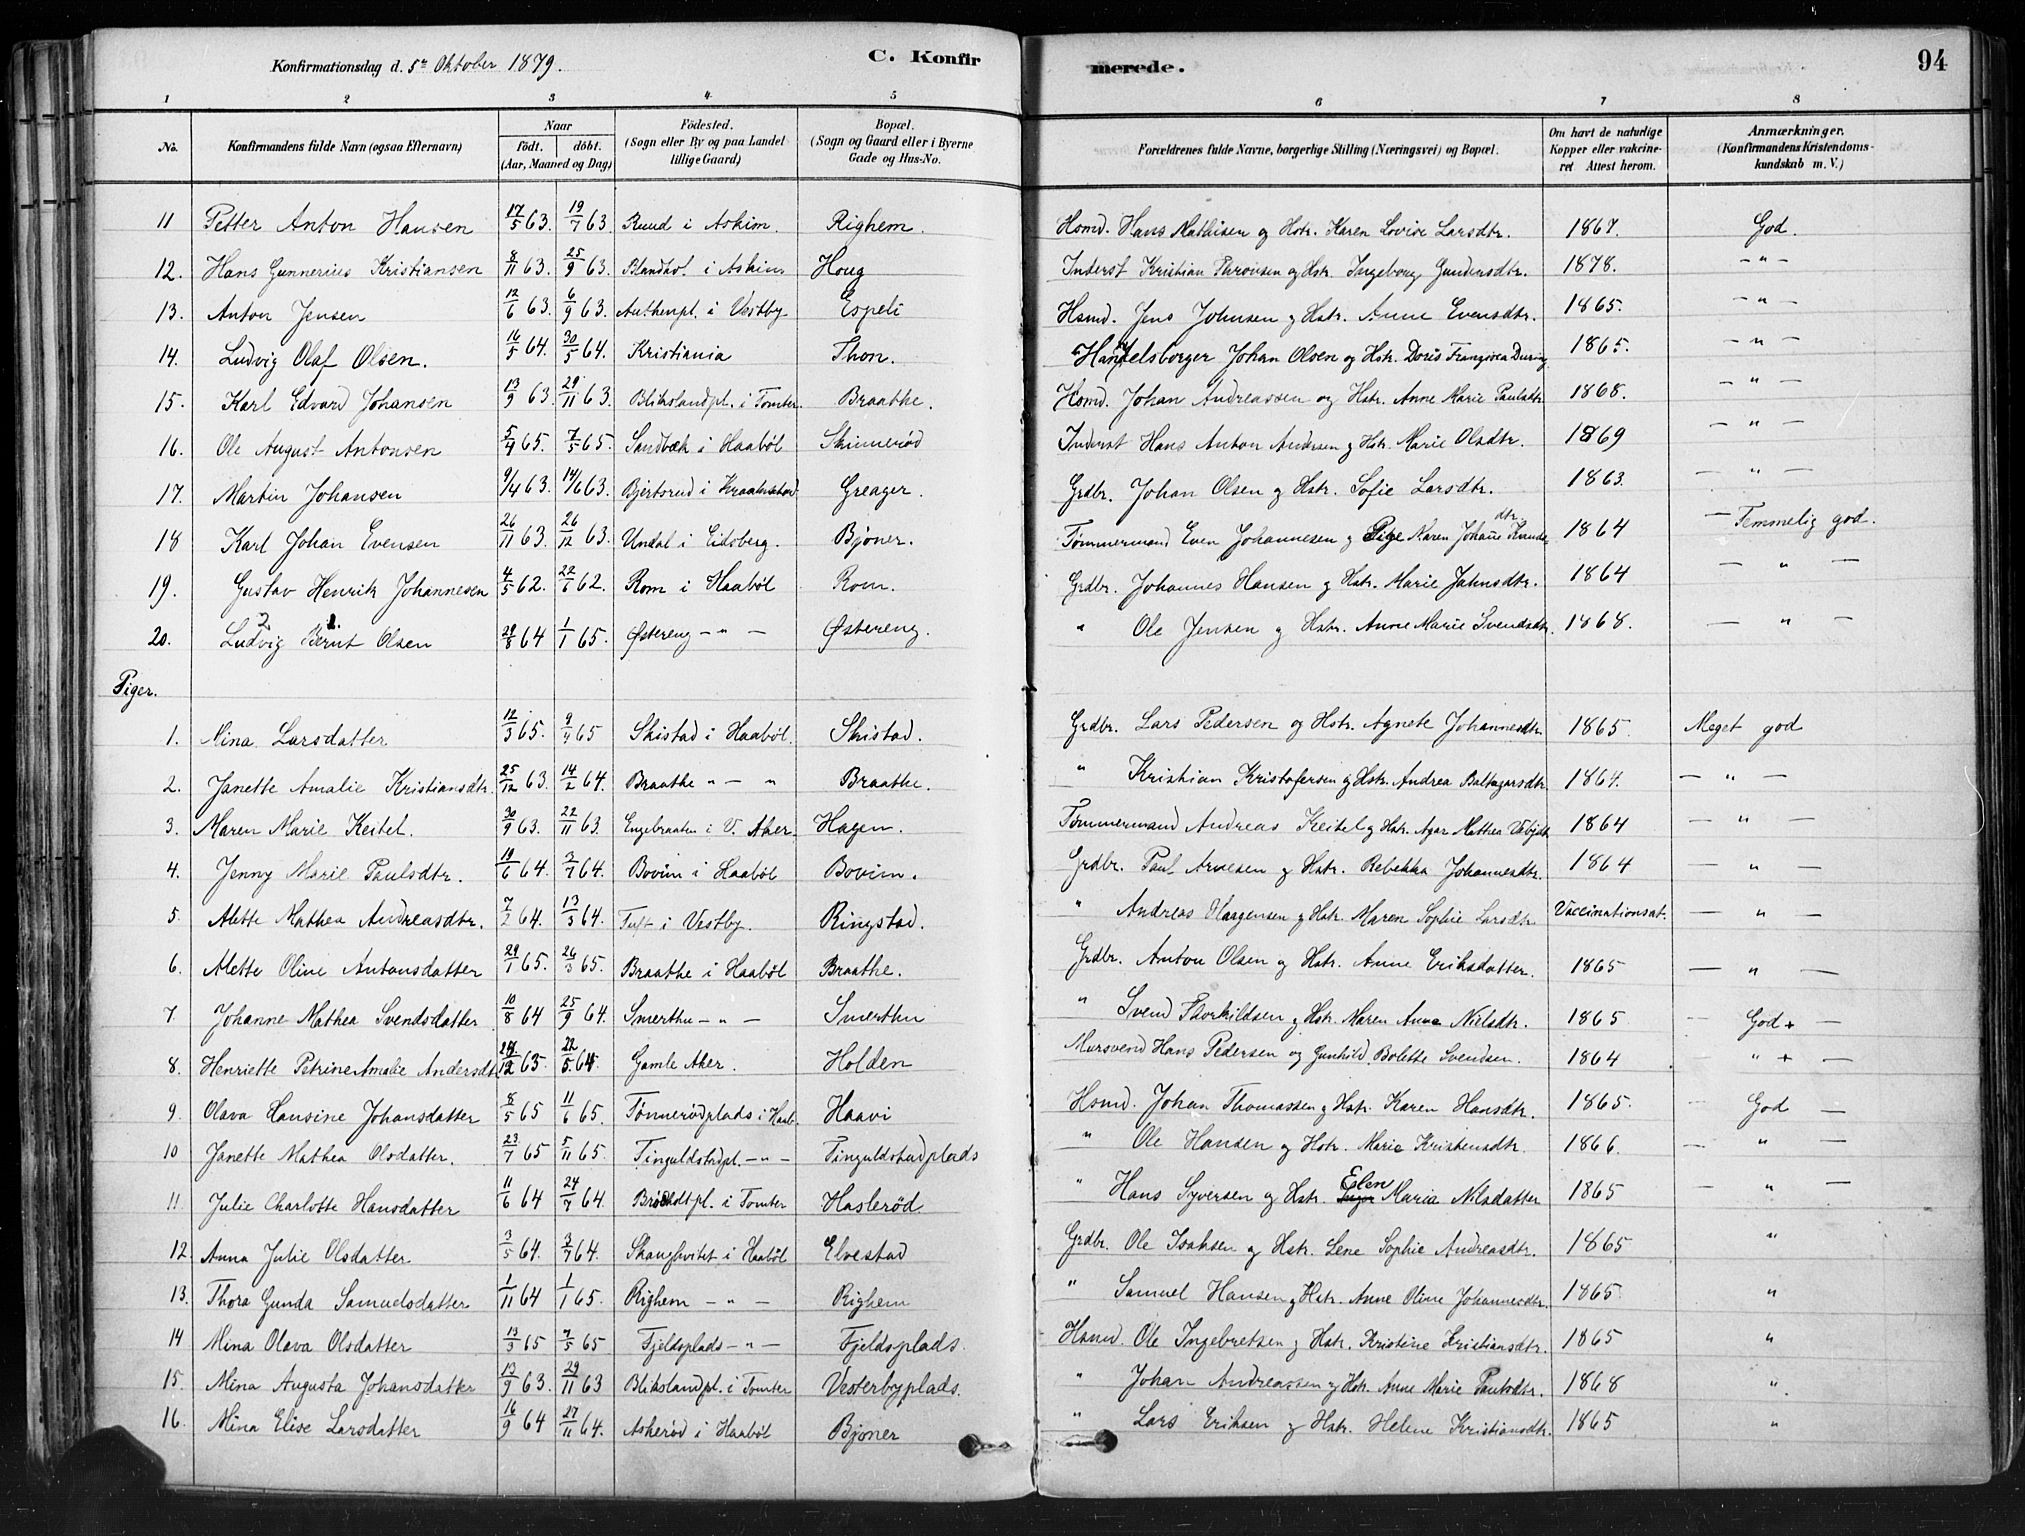 Konfirmationsdag d. 5te Oktober 1879. C. Konfirmerede. 94
1 2 3 4. 5 6 7 8
No. Konfirmandens fulde Navn (ogsaa Efternavn) Naar født. døbt. (Aar, Maaned og Dag) Fødested. (Sogn eller By og paa Landet tillige Gaard) Bopæl. (Sogn og Gaard eller i Byerne Gade og Hus-No. Forældrenes fulde Navne, borgerlige Stilling (Næringsvei) og Bopæl. Om havt de naturlige Kopper eller vakcineret Attest herom. Anmærkninger. (Konfirmandens Kristendomskundskab m. V.)
11 Petter Anton Hansen 17/5 63. 19/7 63. Ruud i Askim. Righem. Hsmd. Hans Mathisen og Hstr. Karen Lovise Larsdtr. 1867. God.
12. Hans Gunnerius Kristiansen 8/11 63. 25/9 63. i Askim Houg Inderst Kristian og Hstr. Ingeborg Gundersdtr. 1878. – " –
13. Anton Jensen 12/6 63. 6/9 63. i Vestby Espeli Hsmd. Jens Johnsen og Hstr. Anne Evensdtr. 1865. – " –
14. Ludvig Olaf Olsen. 16/5 64. 30/5 64. Kristiania Thon. Handelsborger Johan Olsen og Hstr. Doris 1865. – " –
15. Karl Edvard Johansen 13/9 63. 29/11 63. Blikslandpl. i Tomter. Braathe. Hsmd. Johan Andreassen og Hstr. Anne Marie Paulsdtr 1868. – " –
16. Ole August Antonsen 5/4 65. 7/5 65. Sandbæk i Haabøl Skinnerød Inderst Hans Anton Andersen og Hstr. Marie Olsdtr. 1869 – " –
17. Martin Johansen 9/4 63. 14/6 63. Bjertorud i Kraakstad Greager. Grdbr. Johan Olsen og Hstr. Sofie Larsdtr. 1863. – " –
18 Karl Johan Evensen 26/11 63. 26/12 63. Undal i Eidsberg. Bjøner. Tømmermand Even Johannesen og Pige Maren Johane Knudsdtr. 1864 – Temmelig god.
19. Gustav Henrik Johannesen 4/5 62. 22/6 62. Rom i Haabøl Rom. Grdbr. Johannes Hansen og Hstr. Marie Jahnsdtr. 1864 – " –
20. Ludvig Bernt Olsen 2. 1. 29/8 64 1/1 65. Østereng – " – Østereng. " Ole Jensen og Hstr. Anne Marie Svendsdtr. 1868. – " –
Piger.
1. Nina Larsdatter 12/3 65. 9/4 65 Skistad i Haabøl. Skistad. Grdbr. Lars Pedersen og Hstr. Agnete Johannesdtr. 1865. Meget god
2. Janette Amalie Kristiansdtr. 25/12 63. 14/2 64. Braathe " – " Braathe. " Kristian Kristofersen og Hstr. Andrea Baltzersdtr. 1864. – " –
3. Maren Marie Keitel. 30/9 63. 22/11 63. Engebraaten i V. Aker. Hagen. Tømmermand Andreas Keitel og Hstr. Mathea 1864 – " –
4. Jenny Marie Paulsdtr. 19/6 64. 3/7 64. Bovim i Haabøl Bovim. Grdbr. Paul Arnesen og Hstr. Rebekka Johannesdtr. 1864 – " –
5. Alette Mathea Andreasdtr. 7/2 64. 13/3 64. Tuft i Vestby. Ringstad. " Andreas Haagensen og Hstr. Maren Sophie Larsdtr. Vaccinationsat. – " –
6. Alette Oline Antonsdatter 29/1 65. 26/3 65. Braathe i Haabøl Braathe. Grdbr. Anton Olsen og Hstr. Anne Eriksdatter. 1865 – " –
7. Johanne Mathea Svendsdatter 10/8 64 25/9 64. Smerthu – " – Smerthu " Svend Thorkildsen og Hstr. Maren Anna Nielsdtr. 1865 – God + –
8. Henriette Petrine Amalie Andersdtr 12 63. 22/5 64. Gamle Aker. Holden Mursvend Hans Pedersen og Gunhild Bolette Svendsen. 1864 " + –
9. Olava Hansine Johansdatter 8/5 65 11/6 65. Tønnerødplads i Haab. Haavi Hsmd. Johan Thomassen og Hstr. Karen Hansdtr. 1865. – God –
10 Janette Mathea Olsdatter. 23/7 65 5/11 65. Tinguldstadpl. – " – Tinguldstadplads " Ole Hansen og Hstr. Marie Kristensdtr. 1866. – " –
11. Julie Charlotte Hansdatter 11/6 64 24/7 64. i Tomter Haslerød " Hans Syversen og Hstr. Elen Maria Nilsdatter 1865 – " –
12. Anna Julie Olsdatter 3/5 64. 3/7 64. i Haabøl Elvestad Grdbr. Ole Isaksen og Hstr. Lene Sophie Andreasdtr. 1865 "
13. Thora Gunda Samuelsdatter 1/11 64 1/1 65. Righem – " – Righem " Samuel Hansen og Hstr. Anne Oline Johannesdtr. 1865. "
14 Mina Olava Olsdatter 13/3 65 7/5 65 Fjeldsplads – " – Fjeldsplads. Hsmd. Ole Ingebretsen og Hstr. Kristine Kristiansdtr. 1865 "
15. Mina Augusta Johansdatter 13/9 63. 29/11 63 Blikslandpl. i Tomter Vesterbyplads. " Johan Andreassen og Hstr. Anne Marie Paulsdtr. 1868 "
16. Mina Elise Larsdatter 16/9 64 27/11 64. Askerød i Haabøl Bjøner " Lars Eriksen og Hstr. Helene Kristiansdtr. 1865 "